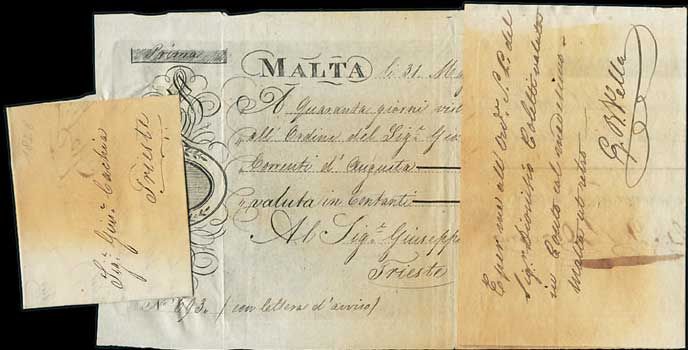 Prima
MALTA li 31. Mag
A Quaranta giorni vist
all'Ordine del Sigr.
Correnti d'Augusta
valuta in Contanti
Al Sigr. Giuseppe
Trieste
No. 693. / con lettera d'avviso /
Sigr. Giuse.
Trieste
E per me all'ord. S. P. del
Sigr. Dionisio valuta
in Conto al medesimo.
Malta ut retro
G. B. Vella